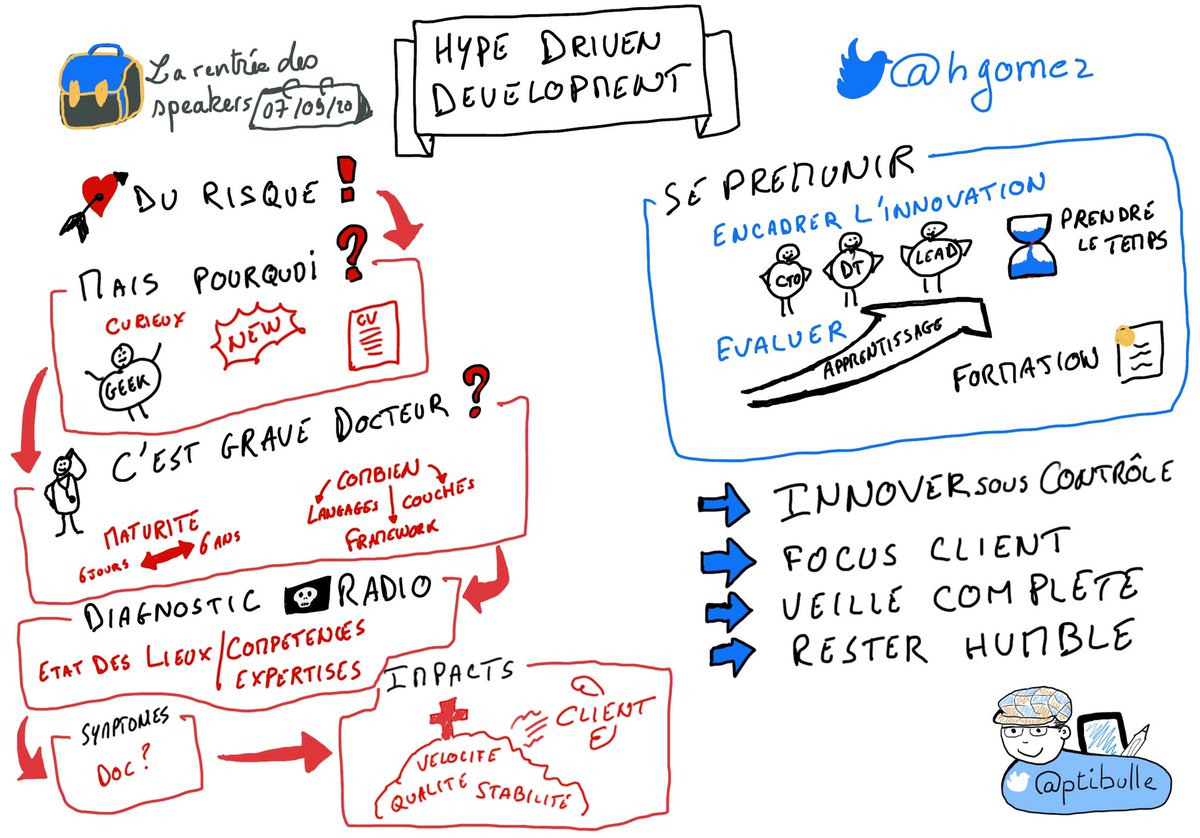 La rentrée des
speakers 07/09/20
HYPE DRIVEN
DEVELOPMENT
@hgomez
DU RISQUE !
MAIS POURQUOI ?
CURIEUX
GEEK
NEW
CV
C'EST GRAVE DOCTEUR ?
MATURITÉ
6 JOURS
6 ANS
COMBIEN
LANGAGES
COUCHES
FRAMEWORK
DIAGNOSTIC RADIO
ETAT DES LIEUX / COMPETENCES
EXPERTISES
SYMPTOMES
DOC ?
IMPACTS
CLIENT
VELOCITE
QUALITÉ STABILITÉ
SE PREMUNIR
ENCADRER L'INNOVATION
CTO
DT
LEAD
PRENDRE
LE TEMPS
EVALUER
APPRENTISSAGE
FORMATION
INNOVER SOUS CONTRÔLE
FOCUS CLIENT
VEILLE COMPLETE
RESTER HUMBLE
@ptibulle